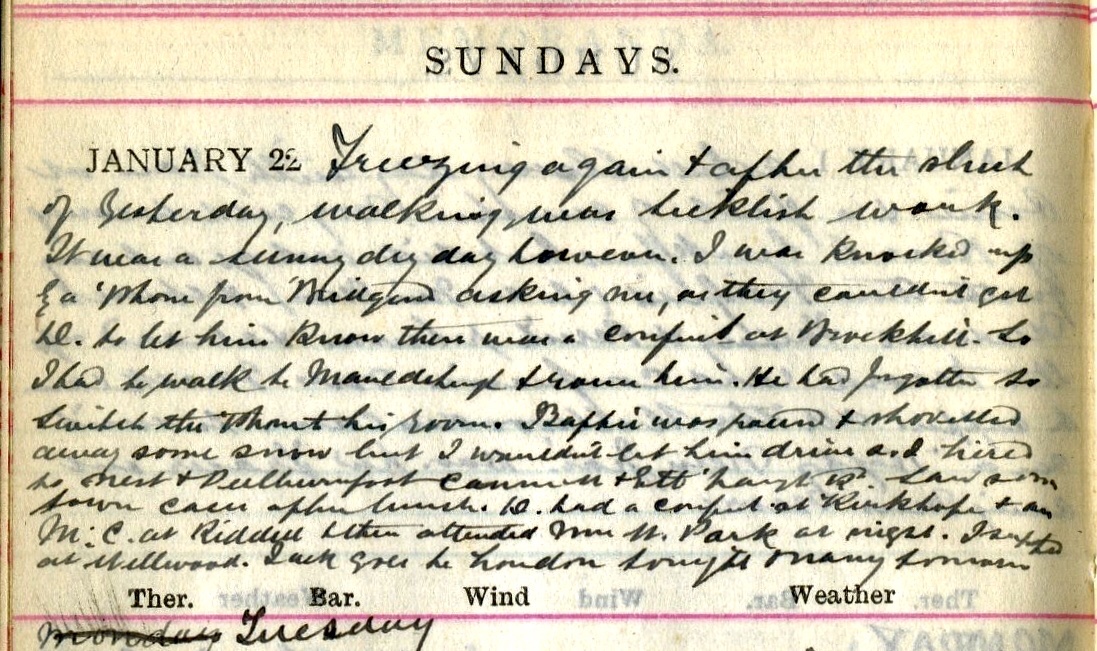 SUNDAYS.
JANUARY 22 Freezing again & after the slush
of yesterday, walking was ticklish work.
It was a sunny dry day however. I was knocked up
by a 'phone from Bridgend asking me, as they couldn't get
D. to let him know there was a confint at Brockhill. So
I had to walk to & rouse him. He had forgotten to
switch the 'phone to his room. Baffie was round & shovelled
away some snow but I wouldn't let him drive so I hired
to West & &
town cases after lunch. D. had a confint at Kirkhope & an
M.C. at Riddell & then attended Mrs W. Park at night. I
at Wellwood. Jack goes to London tonight
Ther. Bar. Wind Weather
Monday Tuesday